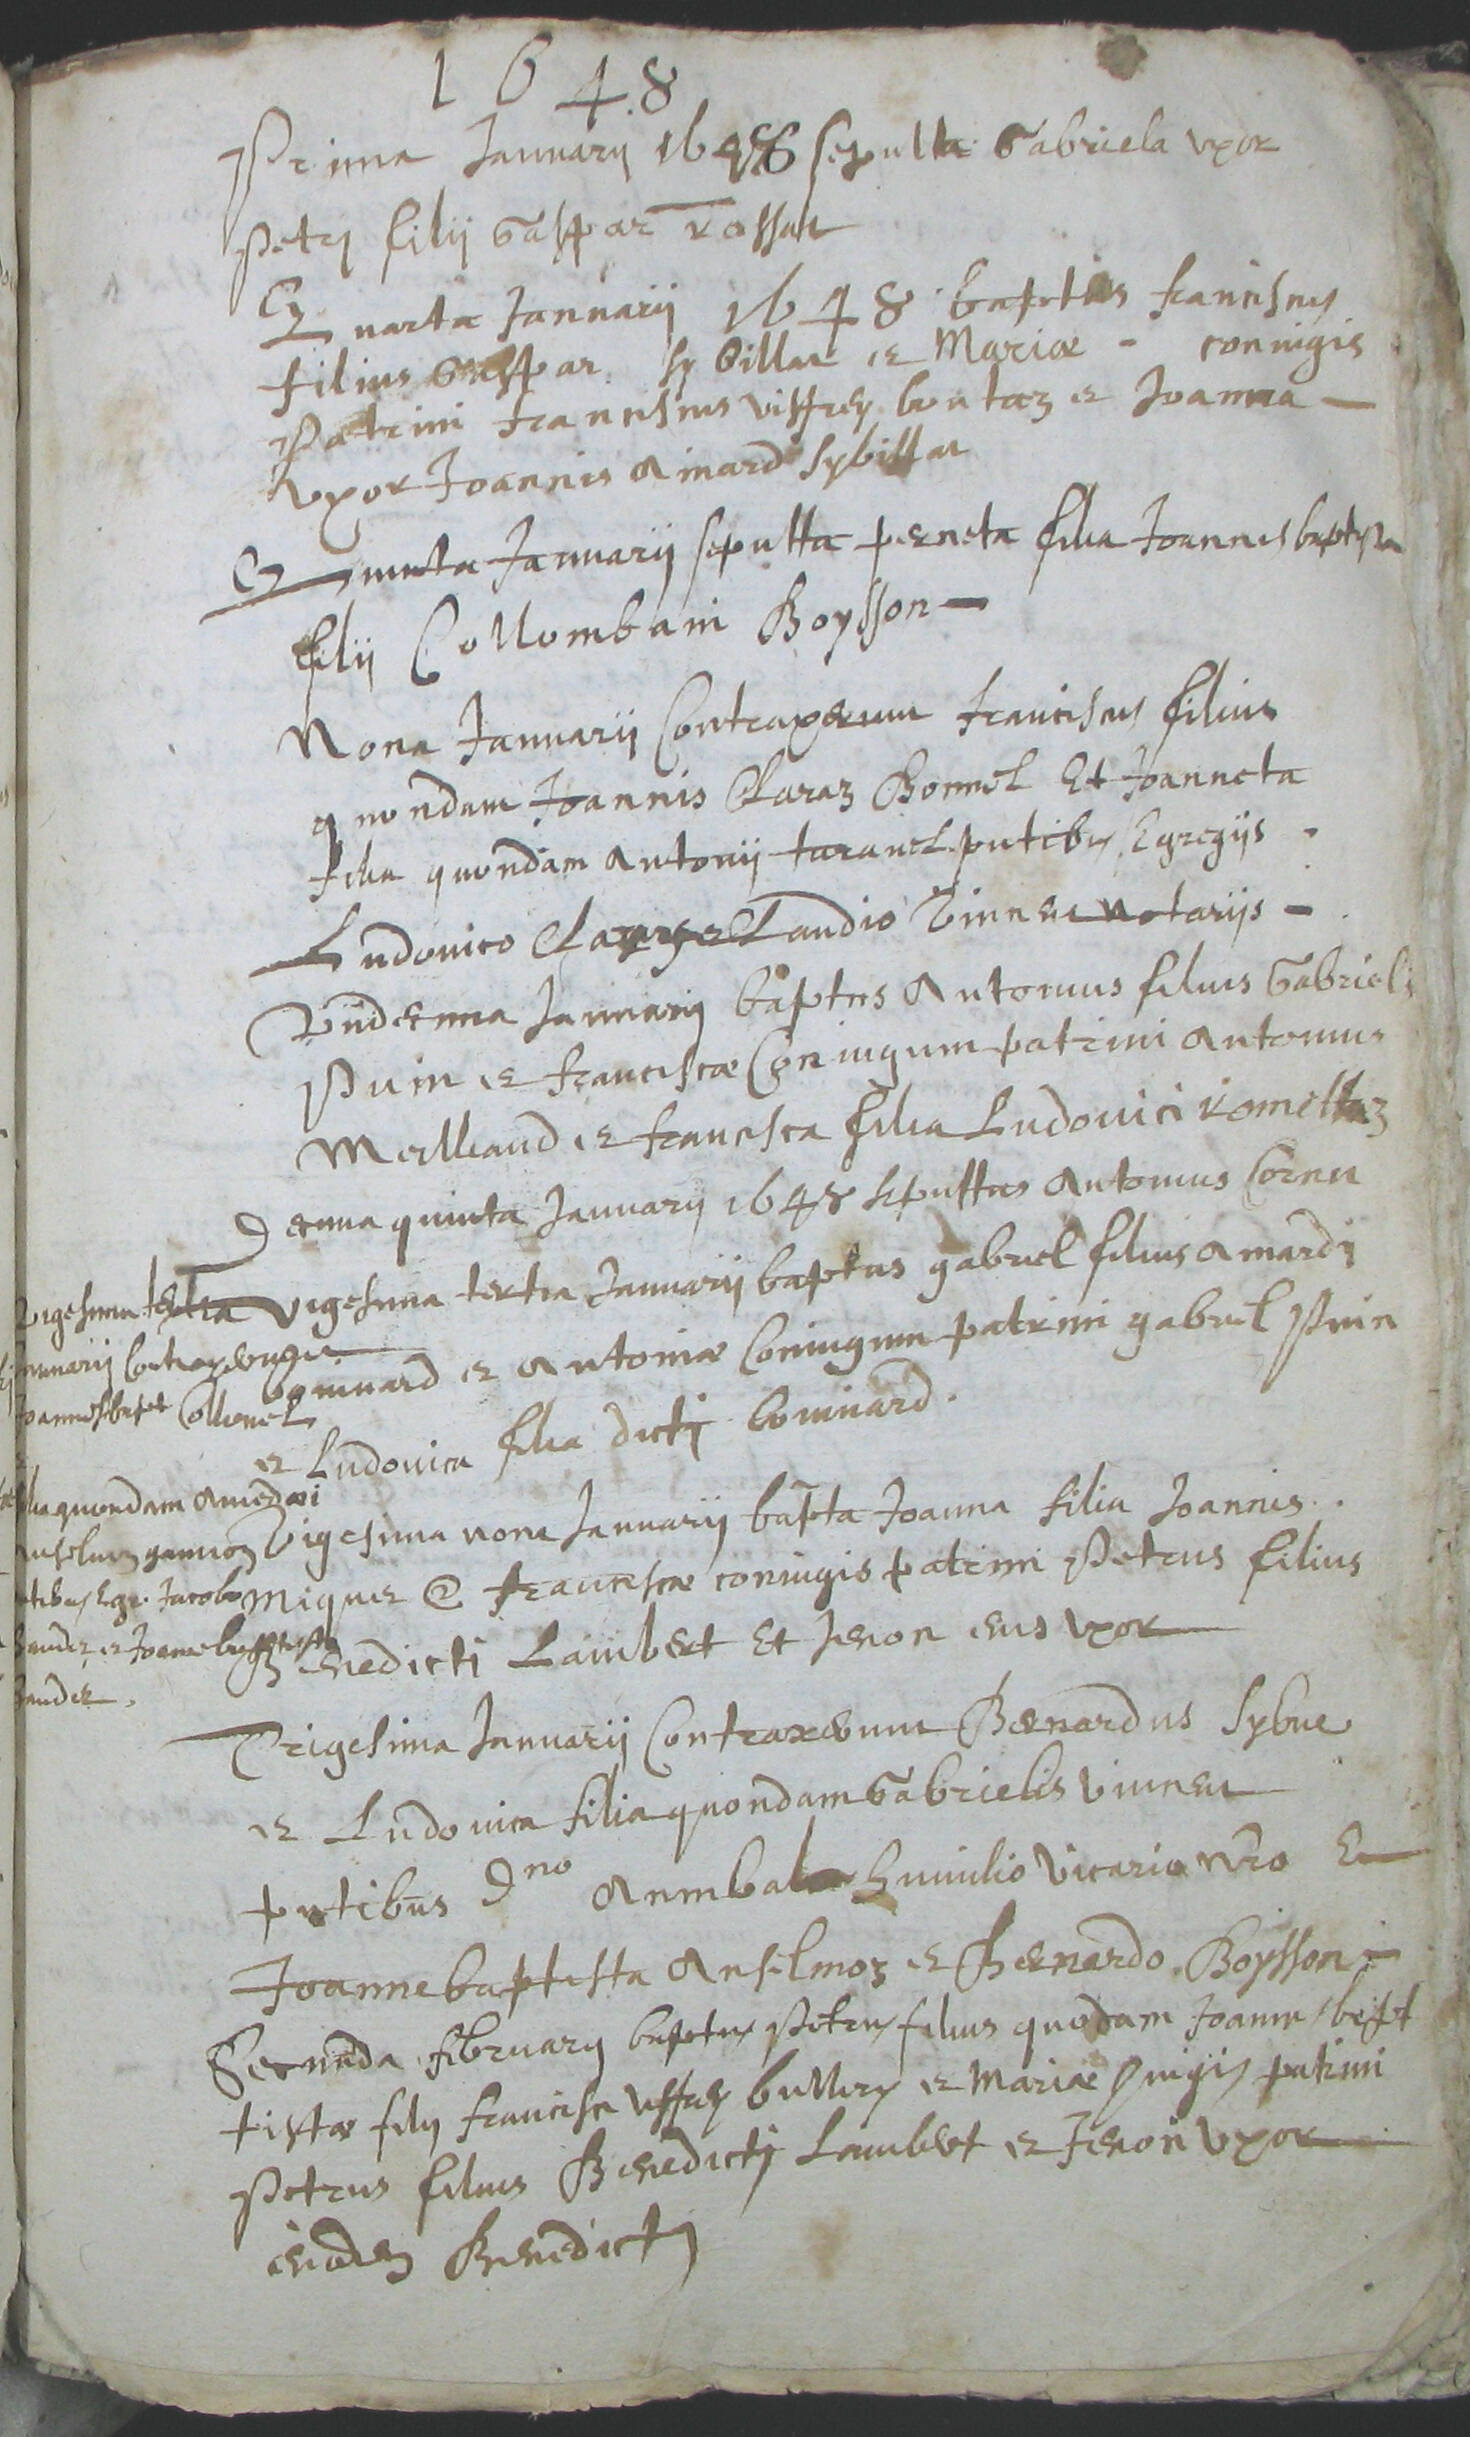 1648
Prima Januarij 1648 sepulta Gabriela vxor
Petrj filij Gaspar Rossat
Quarta Januarij 1648 baptus franciscus
filius Gaspar Sybillat et Mariæ - coniugis
Patrini franciscus viffrey et Joanna -
vxor Joannis Aimard Sybillat
Quinta Januarij sepulta perneta filia Joannis baptista
filij Collombani Boysson -
Nona Januarij Contraxerunt franciscus filius
quondam Joannis Claraz Bonnel Et Joanneta
filia quondam Antonij taranel putibus Egregijs
Ludovico Claraz et Claudio notarijs -
Vndecima Januarij baptus Antonius filius Gabrielis
Puin et franciscæ Coniugum patrini Antonius
Meilleand et francisca filia Ludovici Romellaz
Decima quinta Januarij 1648 sepultus Antonius Cornu
Vigesima tertia Januarij baptus gabriel filius Amardi
bouinard et Antoniæ Coniugum patrini gabriel Puin
et Ludouica filia dictj bouinard.
Vigesima tertia
Januarij Contraxerunt
Joannes bapt Collonel
filia quondam Amedæi
putibus Egr. Jacobo
et Joanne baptista
Vigesima nona Januarij bapta Joanna filia Joannis
Miquer et franciscæ coniugis patrini Petrus filius
Benedicti Lambert Et Jenon eius vxor
Trigesima Januarij Contraxerunt Bernardus Sybue
et Ludouica filia quondam Gabrielis viuneu
putibus Dno Annibale Humilio vicario nro Et
Joanne baptista Anselmoz et Bernardo Boysson -
Secunda februarij baptus Petrus filius quodam Joannis bapt
tistæ filij francisci viffrey bullery et Mariæ patrini
Petrus filius Benedictj Lambert et Jenon vxor
eiusdem Benedictj